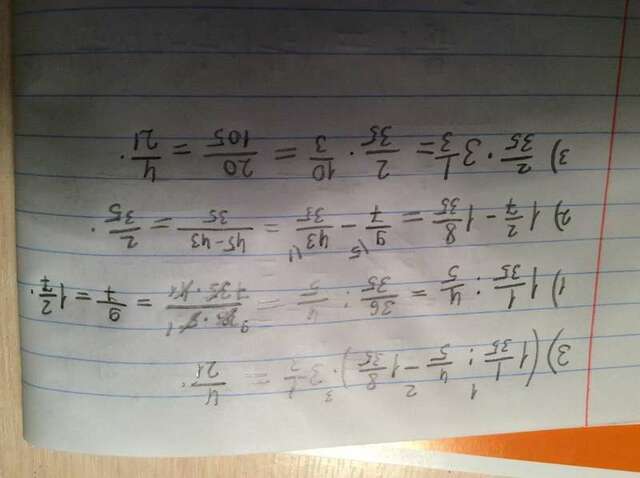 3) (1 1/35 : 4/5 - 1 8/35) · 3 1/3 = 4/21.
1) 1 1/35 : 4/5 = 36/35 : 4/5 = 36·5/35·4 = 9/7 = 1 2/7.
2) 1 2/7 - 1 8/35 = 9/7 \5 - 43/35 \1 = 45-43/35 = 2/35.
3) 2/35 · 3 1/3 = 2/35 · 10/3 = 20/105 = 4/21.